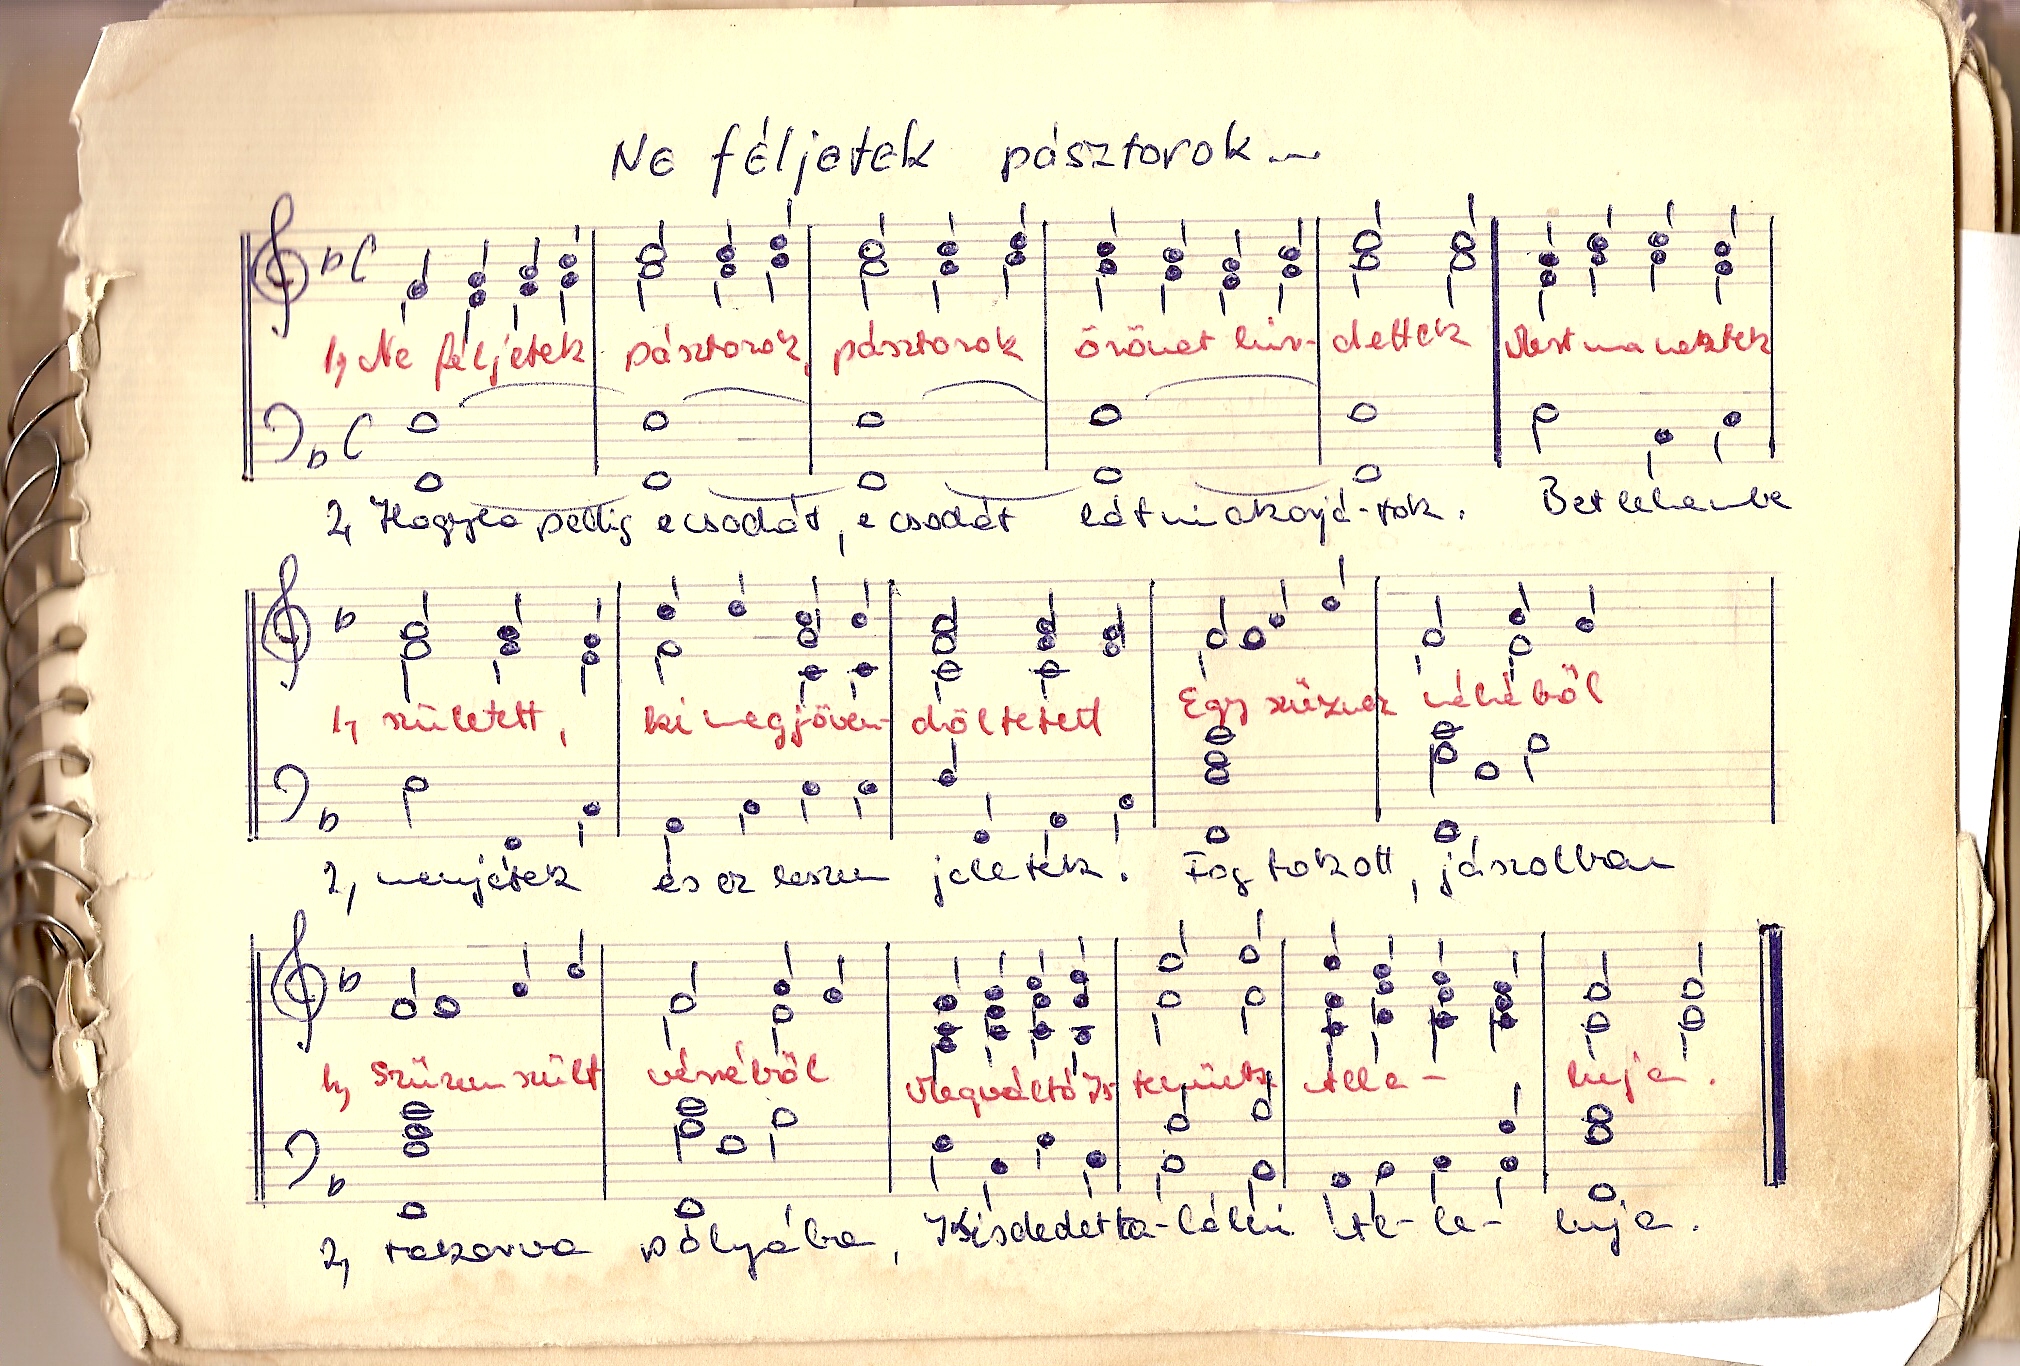 Ne féljetek pásztorok...
1, Ne féljetek pásztorok, pásztorok örömet hir- dettek Mert ma néktek
2, Hogyha pedig e csodát, e csodát látni akarjá-tok. Betlehembe
1, született, ki megjöven- döltetett Egy szűznek méhéből
2, menjetek és ez leszen jeletek. Fog rakott, jászolban
1, Szűzen szült véréből Megváltó Is tenünk Alle- luja.
2, takarva pólyába, Kisdedet ta-lálni Al-le- luja.